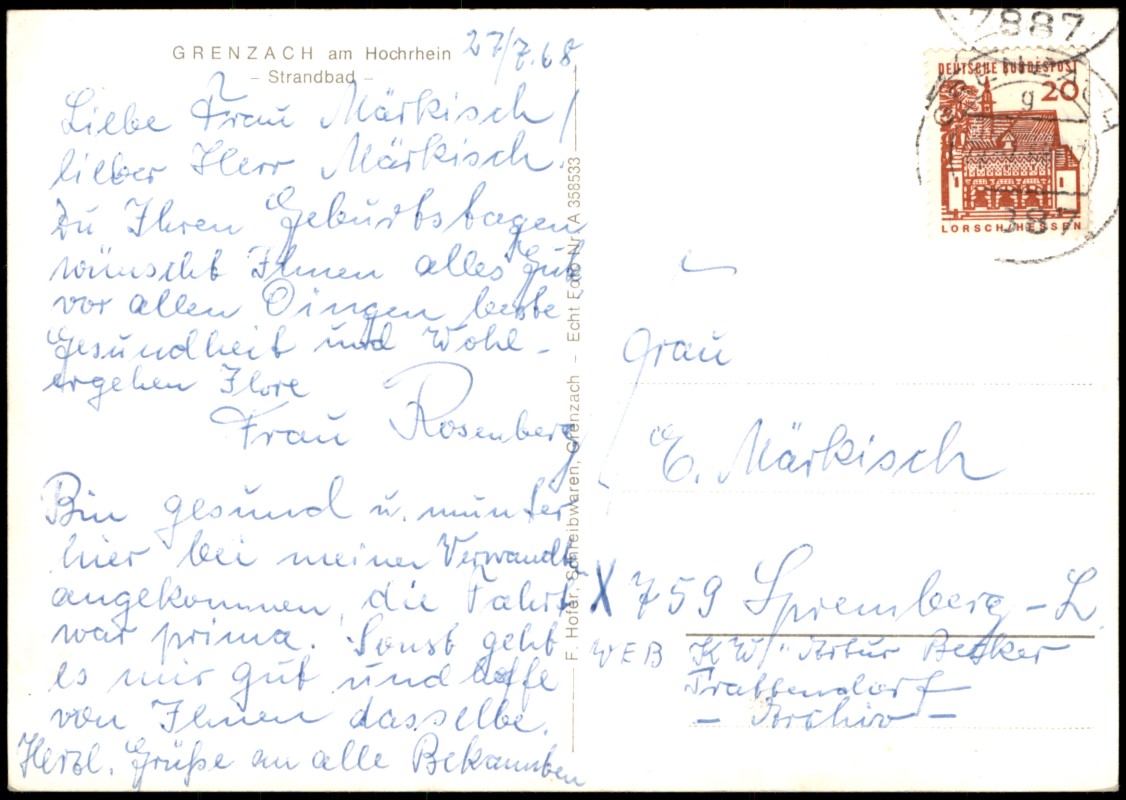 GRENZACH am Hochrhein
– Strandbad –
27/7.68
Liebe Frau Märkisch /
lieber Herr Märkisch.
Zu Ihren Geburtstagen
wünscht Ihnen alles Gute
vor allen Dingen beste
Gesundheit und Wohl-
ergehen Ihre
Frau Rosenberg
Bin gesund u. munter
hier bei meinen Verwandten
angekommen, die Fahrt
war prima. Sonst geht
es mir gut und hoffe
von Ihnen dasselbe.
Herzl. Grüße an alle Bekannten
F. Hofer, Schreibwaren, Grenzach – Echt Foto Nr. A 358533
7887
DEUTSCHE BUNDESPOST
20
LORSCH/HESSEN
g
Frau
E. Märkisch
X 759 Spremberg-L.
VEB KW "Artur Becker
Trattendorf
– Archiv –